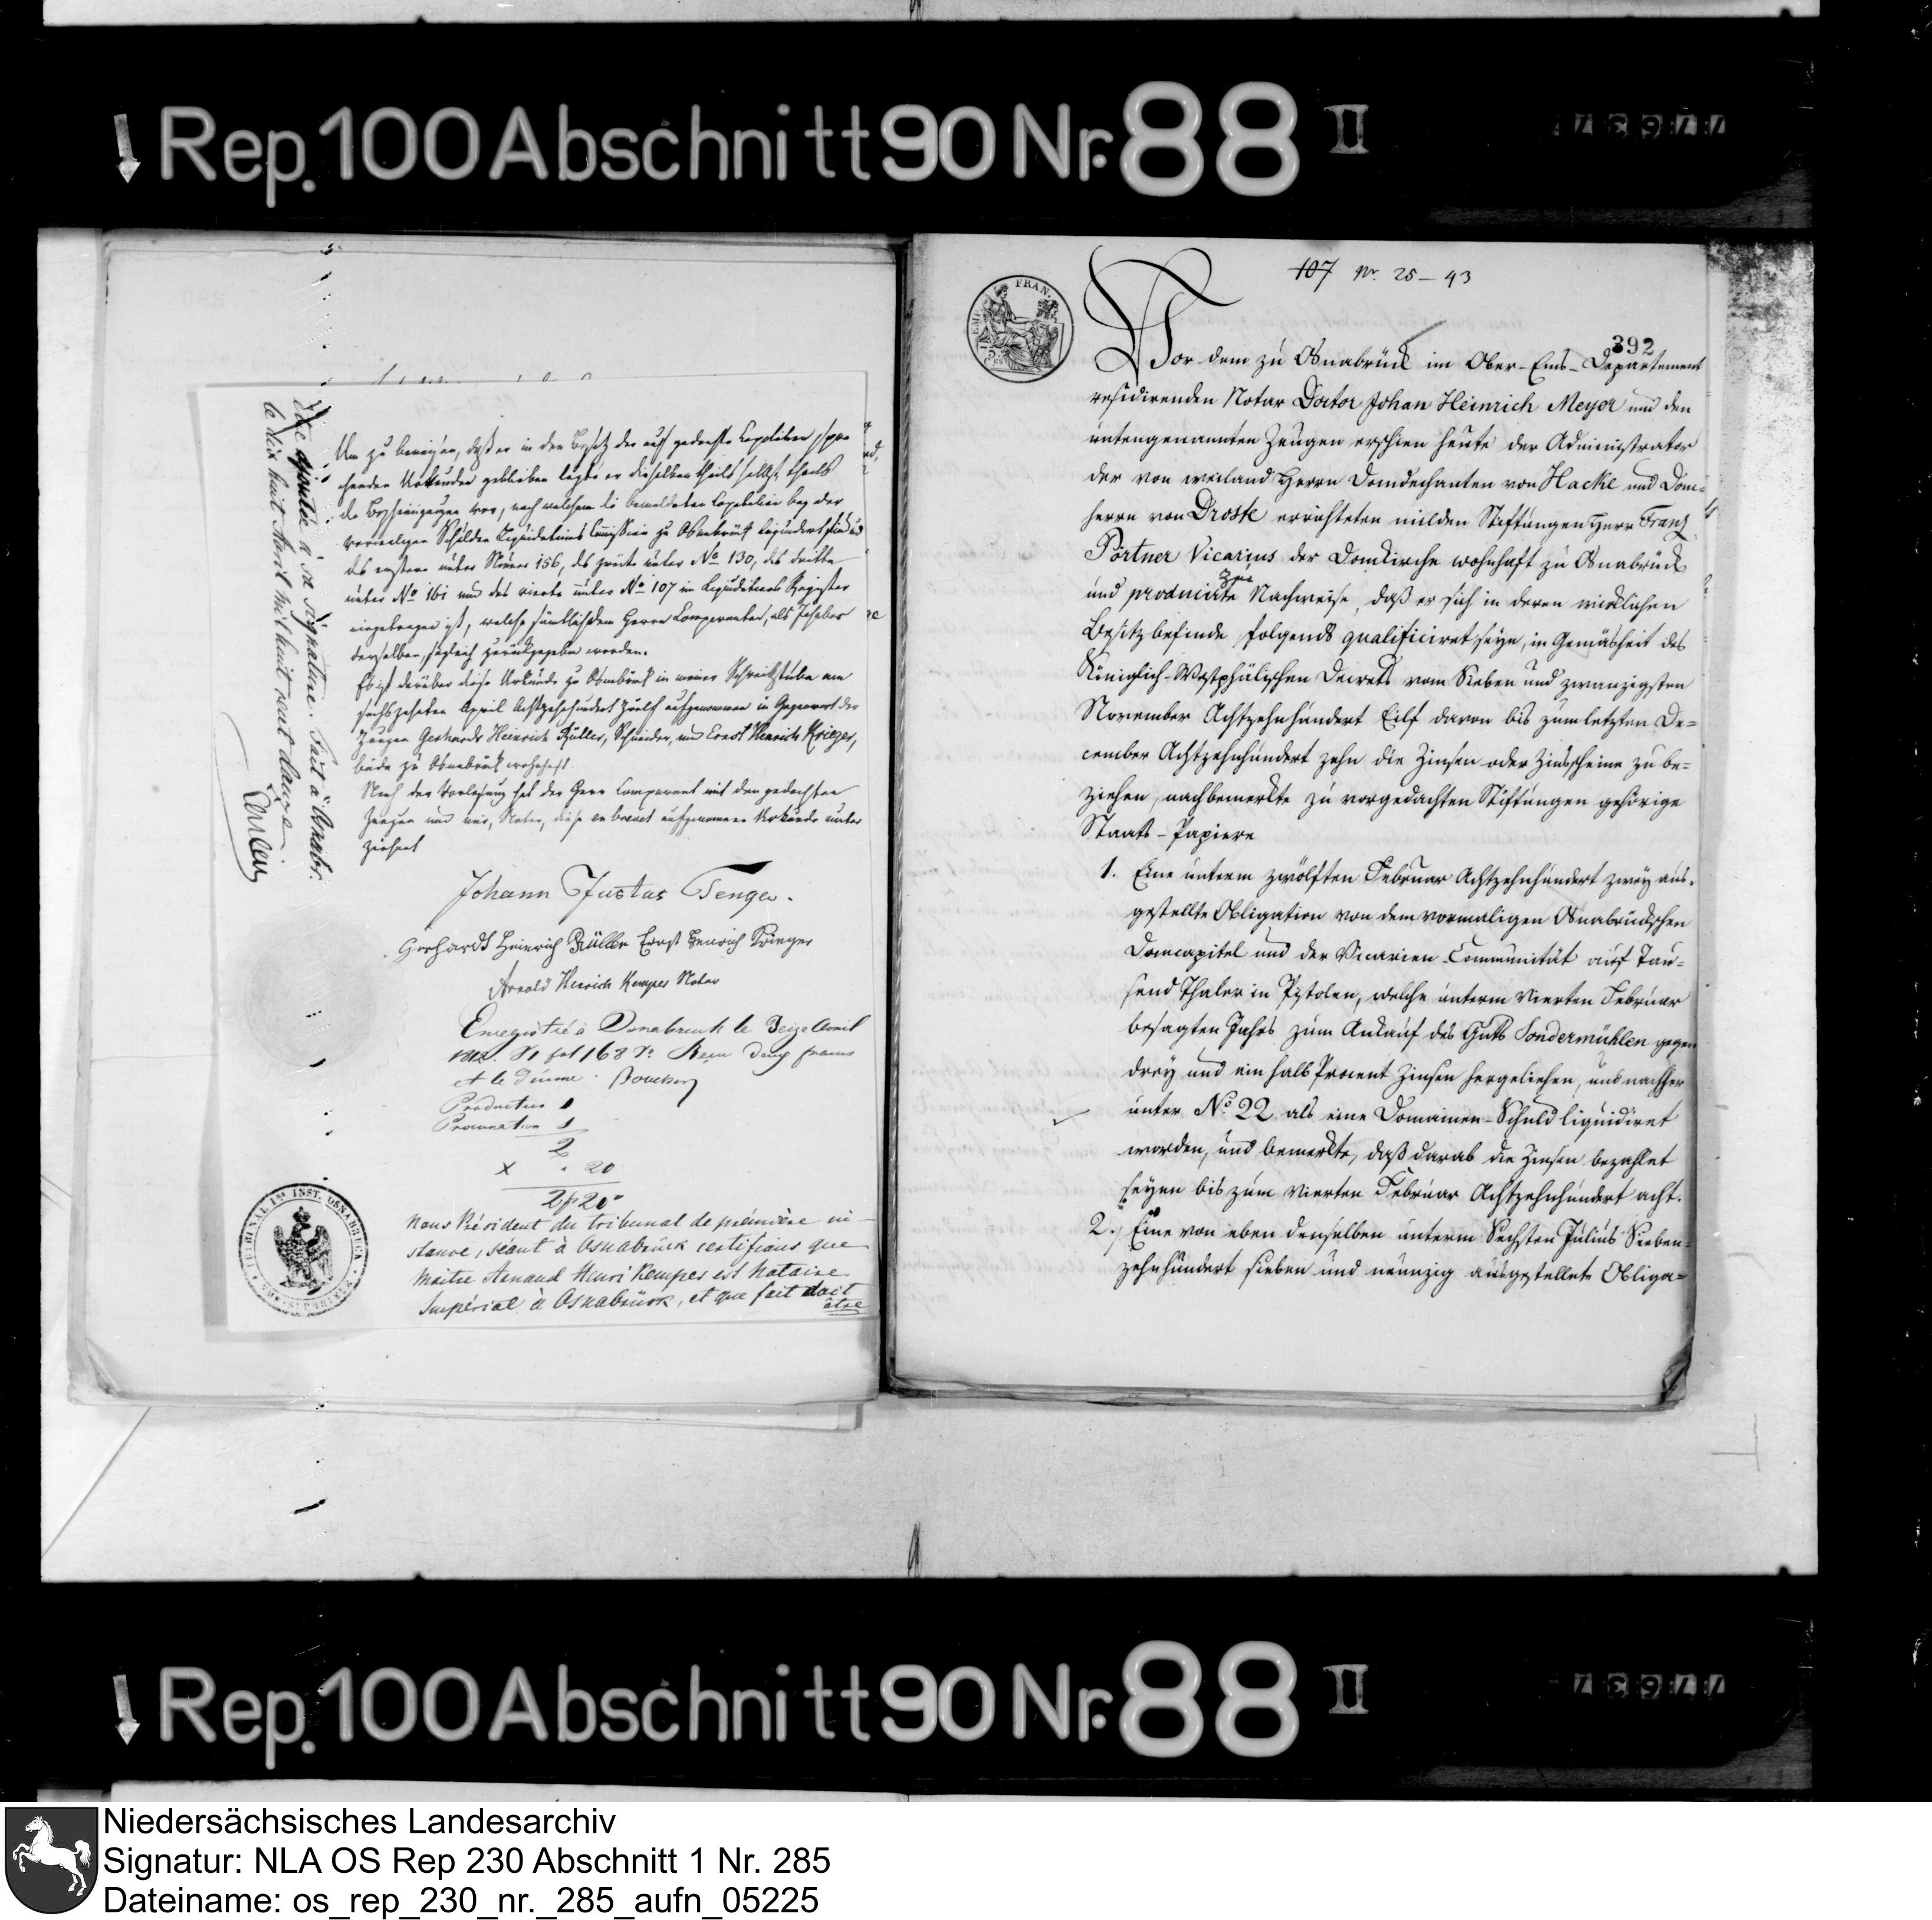 Rep. 100 Abschnitt 90 Nr. 88 II
77637
Um zu beweisen, daß er in dem Besitz der auf gedachte Capitalien spre
chenden Urkunden geblieben legte er dieselben theils selbst theils
die Bescheinigungen vor, nach welchem die bemeldeten Capitalien bey der
vormaligen Schulden Liquidations Commission zu Osnabrück liquidirt sind und
das erstere unter Numer 156, das zweite unter No 130, das dritte
unter No 161 und das vierte unter No 107 im Liquidations Register
eingetragen ist, welche sämtlich dem Herrn Comparenten, als Inhaber
derselben, sogleich zurückgegeben worden.
Es ist darüber diese Urkunde zu Osnabrück in meiner Schreibstube am
sechszehnten April Achtzehnhundert zwölf aufgenommen in Gegenwart der
Zeugen Gerhardt Heinrich Rüller, Schneider, und Ernst Henrich Krieger,
beide zu Osnabrück wohnhaft.
Nach der Vorlesung hat der Herr Comparent mit den gedachten
Zeugen und mir, Notar, diese en brevet aufgenommene Urkunde unter
zeichnet
Johann Justus Tenge.
Gerhardt Heinrich Rüller Ernst Henrich Krieger
Arnold Henrich Kemper Notar
Enregistré à Osnabruck le Seize Avril
1812. fol 168 Vo Reçu deux francs
et le Dixieme.
2
x 20
Nous Président du tribunal de première in-
stance, séant à Osnabrück certifions que
Maitre Arnaud Henri Kemper est Notaire
Impérial à Osnabrück, et que fait doit
être
être ajoutée à sa signature. Fait à Osnabr:
le dix huit Avril mil huit cent douze
TRIBUNAL 1RE INST. OSNABRUCK
107 Nr. 25 - 43
EMP. FRAN.
392
Vor dem zu Osnabrück im Ober-Ems-Departement
residirenden Notar Doctor Johan Heinrich Meyer und den
untengenannten Zeugen erschien heute der Administrator
der von weiland Herrn Domdechanten von Hacke und Dom=
herrn von Droste errichteten milden Stiftungen Herr Franz
Pörtner Vicarius der Domkirche wohnhaft zu Osnabrück
und producirte zum Nachweise, daß er sich in deren wirklichen
Besitz befinde, folgends qualificiret seyn, in Gemäsheit des
Königlich-Westphälischen Decrets vom Sieben und zwanzigsten
November Achtzehnhundert Eilf davon bis zum letzten De=
cember Achtzehnhundert zehn die Zinsen oder Zinsscheine zu be=
ziehen, nachbemerkte zu vorgedachten Stiftungen gehörige
Staats-Papiere
1. Eine unterm zwölften Februar Achtzehnhundert zwey aus-
gestellte Obligation von dem vormaligen Osnabrückschen
Domcapitel und der Vicarien-Communität auf Tau=
send Thaler in Pistolen, welche unterm Vierten Februar
besagten Jahrs zum Ankauf des Guts Sondermühlen gegen
drey und ein halb Procent Zinsen hergeliehen, und nachher
unter No 22 als eine Domainen-Schuld liquidiret
worden, und bemerkte, daß darab die Zinsen bezahlet
seyen bis zum Vierten Februar Achtzehnhundert acht.
2.) Eine von eben denselben unterm Sechsten Julius Sieben=
zehnhundert sieben und neunzig ausgestellete Obliga=
Rep. 100 Abschnitt 90 Nr. 88 II
77637
Niedersächsisches Landesarchiv
Signatur: NLA OS Rep 230 Abschnitt 1 Nr. 285
Dateiname: os_rep_230_nr._285_aufn_05225